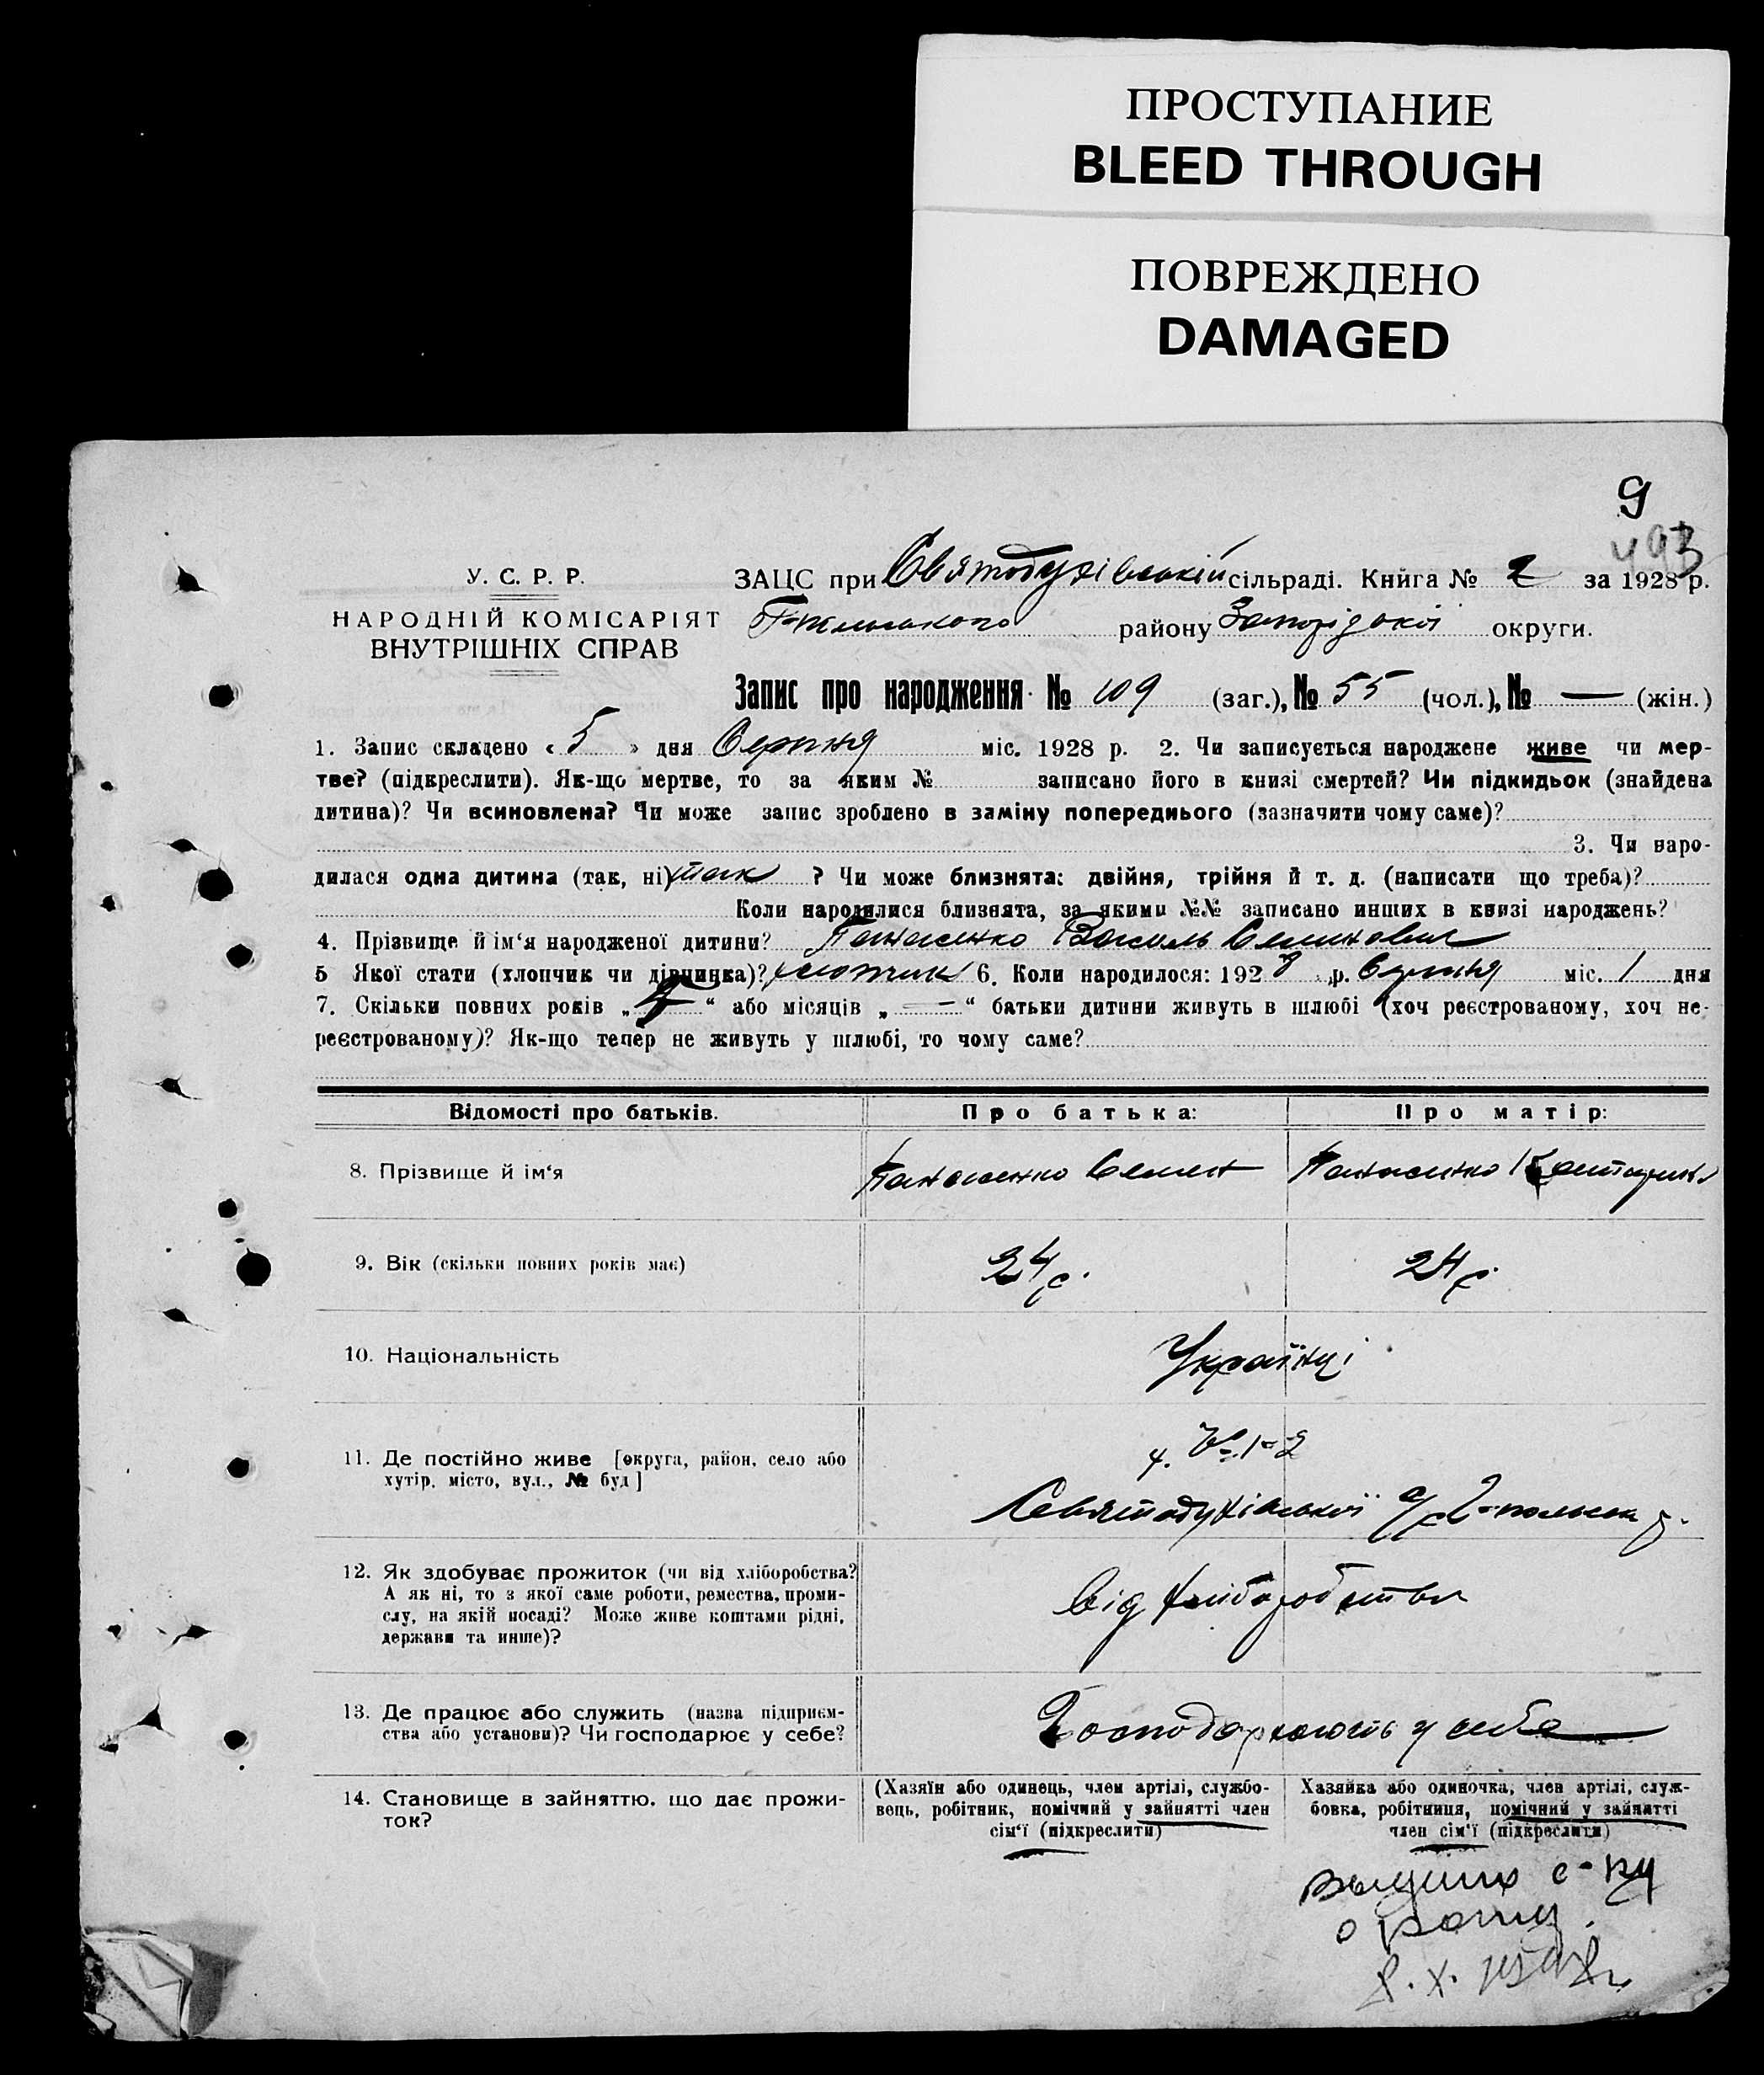 ПРОСТУПАНИЕ
BLEED THROUGH
ПОВРЕЖДЕНО
DAMAGED
9
493
У. С. Р. Р.
НАРОДНІЙ КОМІСАРІЯТ
ВНУТРІШНІХ СПРАВ
ЗАЦС при Святодухівській сільраді. Книга № 2 за 1928 р.
району Запорізької округи.
Запис про народження № 109 (заг.), № 55 (чол.), № — (жін.)
1. Запис складено « 5 » дня Серпня міс. 1928 р. 2. Чи записується народжене живе чи мер-
тве? (підкреслити). Як-що мертве, то за яким № записано його в книзі смертей? Чи підкидьок (знайдена
дитина)? Чи всиновлена? Чи може запис зроблено в заміну попереднього (зазначити чому саме)?
3. Чи наро-
дилася одна дитина (так, ні) так ? Чи може близнята: двійня, трійня й т. д. (написати що треба)?
Коли народилися близнята, за якими №№ записано инших в книзі народжень?
4. Прізвище й ім‘я народженої дитини? Панасенко Василь Семенович
5 Якої стати (хлопчик чи дівчинка)? хлопчик 6. Коли народилося: 1928 р. Серпня міс. 1 дня
7. Скільки повних років „ 4 “ або місяців „ — “ батьки дитини живуть в шлюбі (хоч реєстрованому, хоч не-
реєстрованому)? Як-що тепер не живуть у шлюбі, то чому саме?
Відомості про батьків. Про батька: Про матір:
8. Прізвище й ім‘я Панасенко Семен Панасенко Катерина
9. Вік (скільки повних років має) 24 р. 24 р.
10. Національність Українці
11. Де постійно живе [округа, район, село або
хутір, місто, вул., № буд]
Святодухівської с/р
12. Як здобуває прожиток (чи від хліборобства?
А як ні, то з якої саме роботи, ремества, проми-
слу, на якій посаді? Може живе коштами рідні,
держави та инше)?
від хліборобства
13. Де працює або служить (назва підприєм-
ства або установи)? Чи господарює у себе?
Господарюють у себе
14. Становище в зайняттю, що дає прожи-
ток?
(Хазяїн або одинець, член артілі, службо-
вець, робітник, помічний у зайнятті член
сім‘ї (підкреслити)
Хазяйка або одиночка, член артілі, служ-
бовка, робітниця, помічний у зайнятті
член сім‘ї (підкреслити)